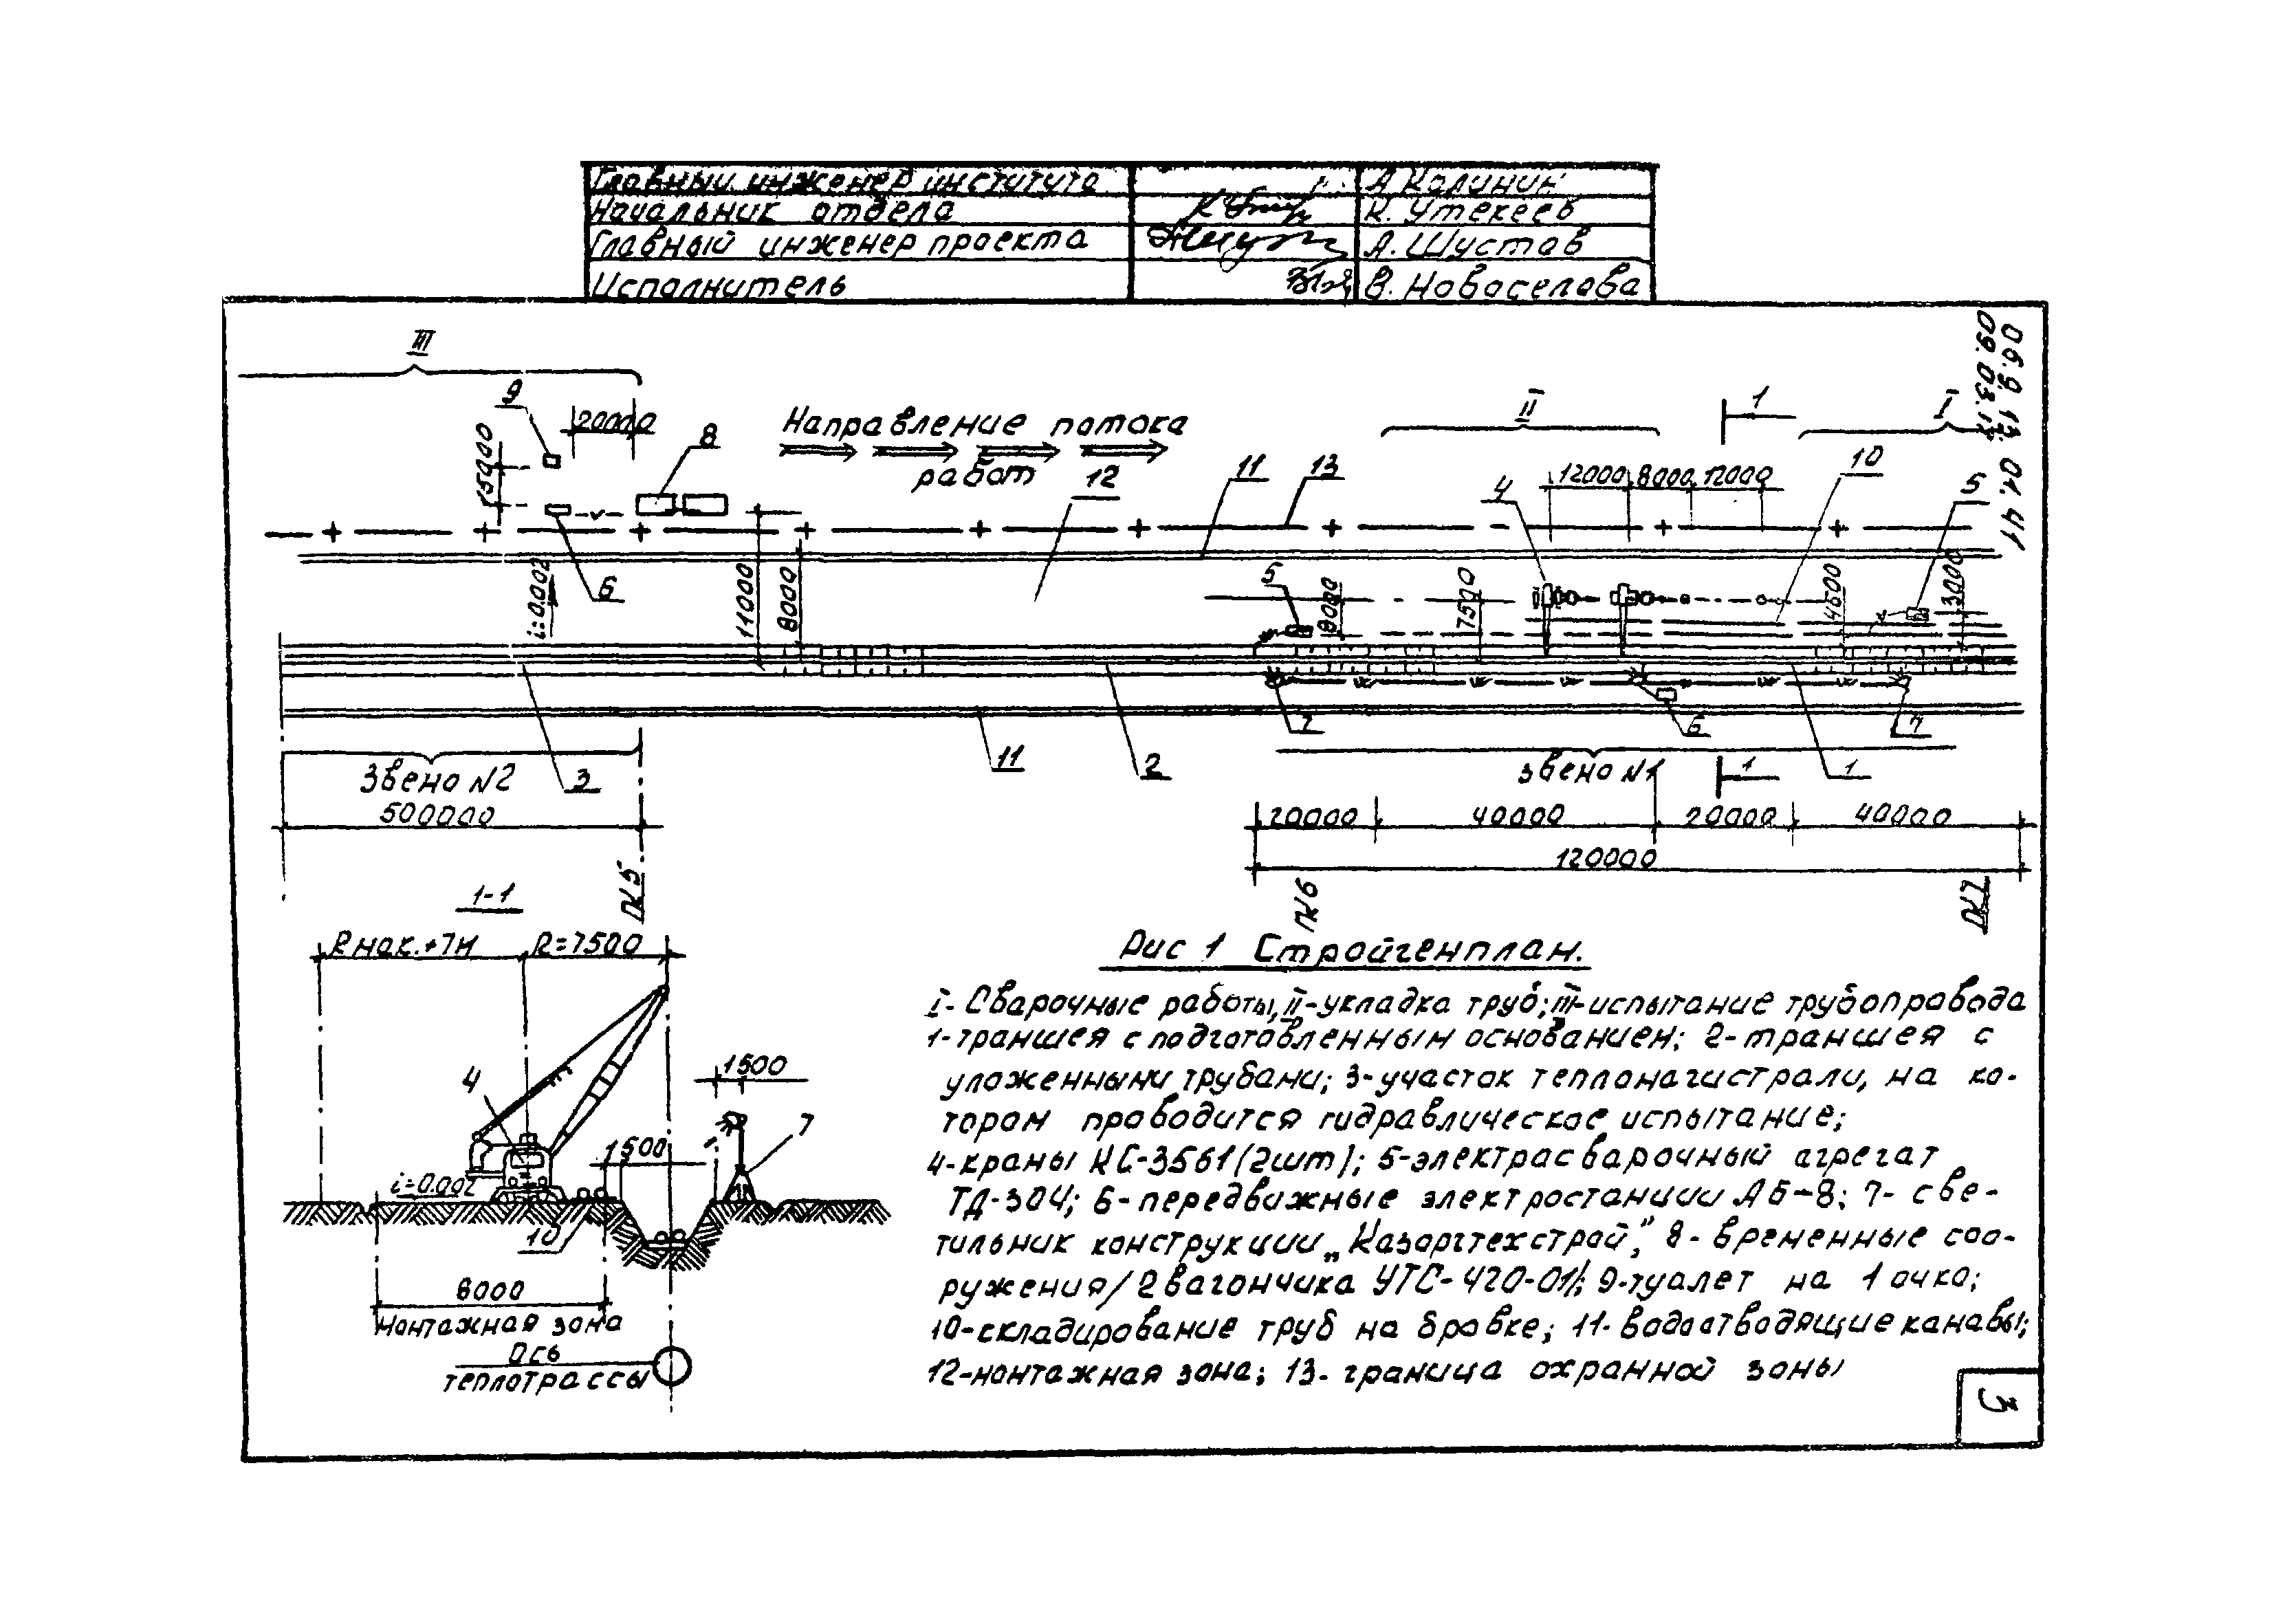 Главный инженер института А. Калинин
Начальник отдела К. Утекеев
Главный инженер проекта А. Шустов
Исполнитель В. Новоселова
06.9.13 01.41
09.03.17
III
9
20000
8
15000
Направление потока
работ
12
11
13
II
1
I
4
12000 8000 12000
10
5
i=0.002
6
11000
8000
5
8000
7500
4500
3000
7
6
7
Звено №2
3
11
2
звено №1
1
1
500000
20000 40000 20000 40000
120000
ПК5
ПК6
ПК7
1-1
R нак.+7м R=7500
4
1500
7
1500
i=0.002
10
8000
Монтажная зона
Ось
теплотрассы
Рис 1 Стройгенплан.
I- Сварочные работы, II-укладка труб; III-испытание трубопровода
1-траншея с подготовленным основанием; 2-траншея с
уложенными трубами; 3-участок тепломагистрали, на ко-
тором проводится гидравлическое испытание;
4-краны КС-3561(2шт); 5-электрасварочный агрегат
ТД-304; 6-передвижные электростанции АБ-8; 7- све-
тильник конструкции „Казоргтехстрой," 8- временные соо-
ружения/2 вагончика УТС-420-01/; 9-туалет на 1 очко;
10-складирование труб на бровке; 11-водоотводящие канавы;
12-монтажная зона; 13- граница охранной зоны
3